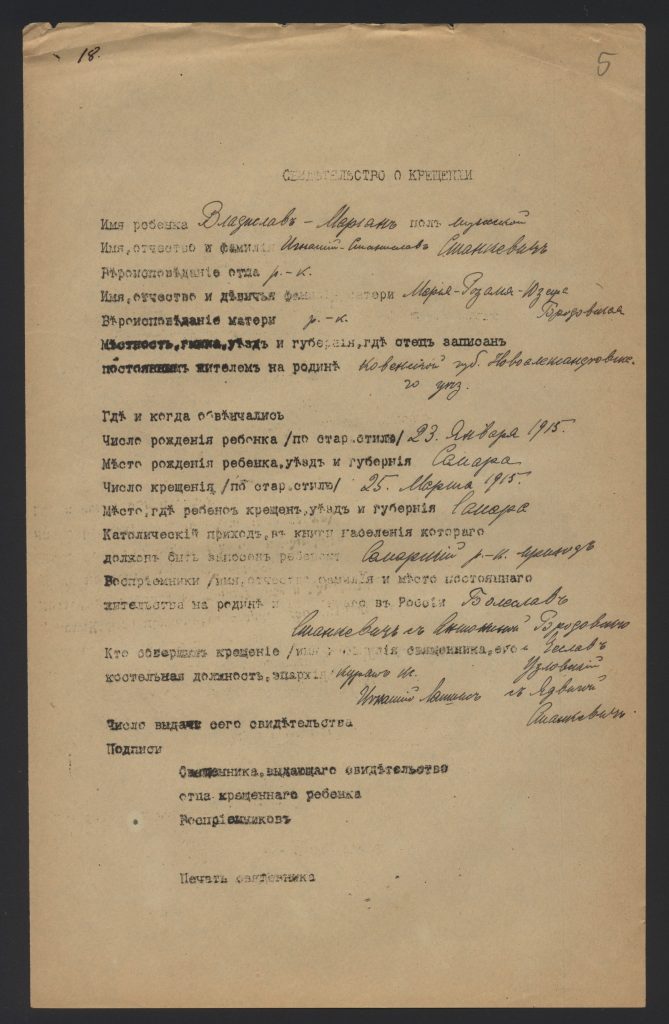 18.
5
СВИДѢТЕЛЬСТВО О КРЕЩЕНІИ
Имя ребенка Владиславъ - Марьянъ полъ мужской
Имя, отчество и фамилія Игнатій-Станиславъ Станкевичъ
Вѣроисповѣданіе отца р.-к.
Имя, отчество и дѣвичья фамилія матери Марья-Розалія-Юзефа
Бродовская
Вѣроисповѣданіе матери р.-к.
Мѣстность, гмина, уѣздъ и губернія, гдѣ отецъ записанъ
постояннымъ жителемъ на родинѣ Ковенской губ. Новоалександровска-
го уѣз.
Гдѣ и когда обвѣнчались
Число рожденія ребенка /по стар.стилю/ 23. Января 1915.
Мѣсто рожденія ребенка, уѣздъ и губернія Самара
Число крещенія /по стар.стилю/ 25. Марта 1915.
Мѣсто, гдѣ ребенокъ крещенъ, уѣздъ и губернія Самара
Католическій приходъ, въ книги населенія котораго
долженъ быть внесенъ ребенокъ Самарскій р.-к. приходъ
Воспріемники /имя, отчество, фамилія и мѣсто постояннаго
жительства на родинѣ и въ Россіи Болеславъ
Станкевичъ съ Антониной Бродовскою
Кто совершилъ крещеніе /имя и фамилія священника, его и Чеславъ
костельная должность, эпархія Куратъ Кс. Узловскій
Игнатій съ Ядвигой
Станкевичъ.
Число выдачи сего свидѣтельства
Подписи
Священника, выдающаго свидѣтельство
отца крещеннаго ребенка
Воспріемниковъ
Печать священника